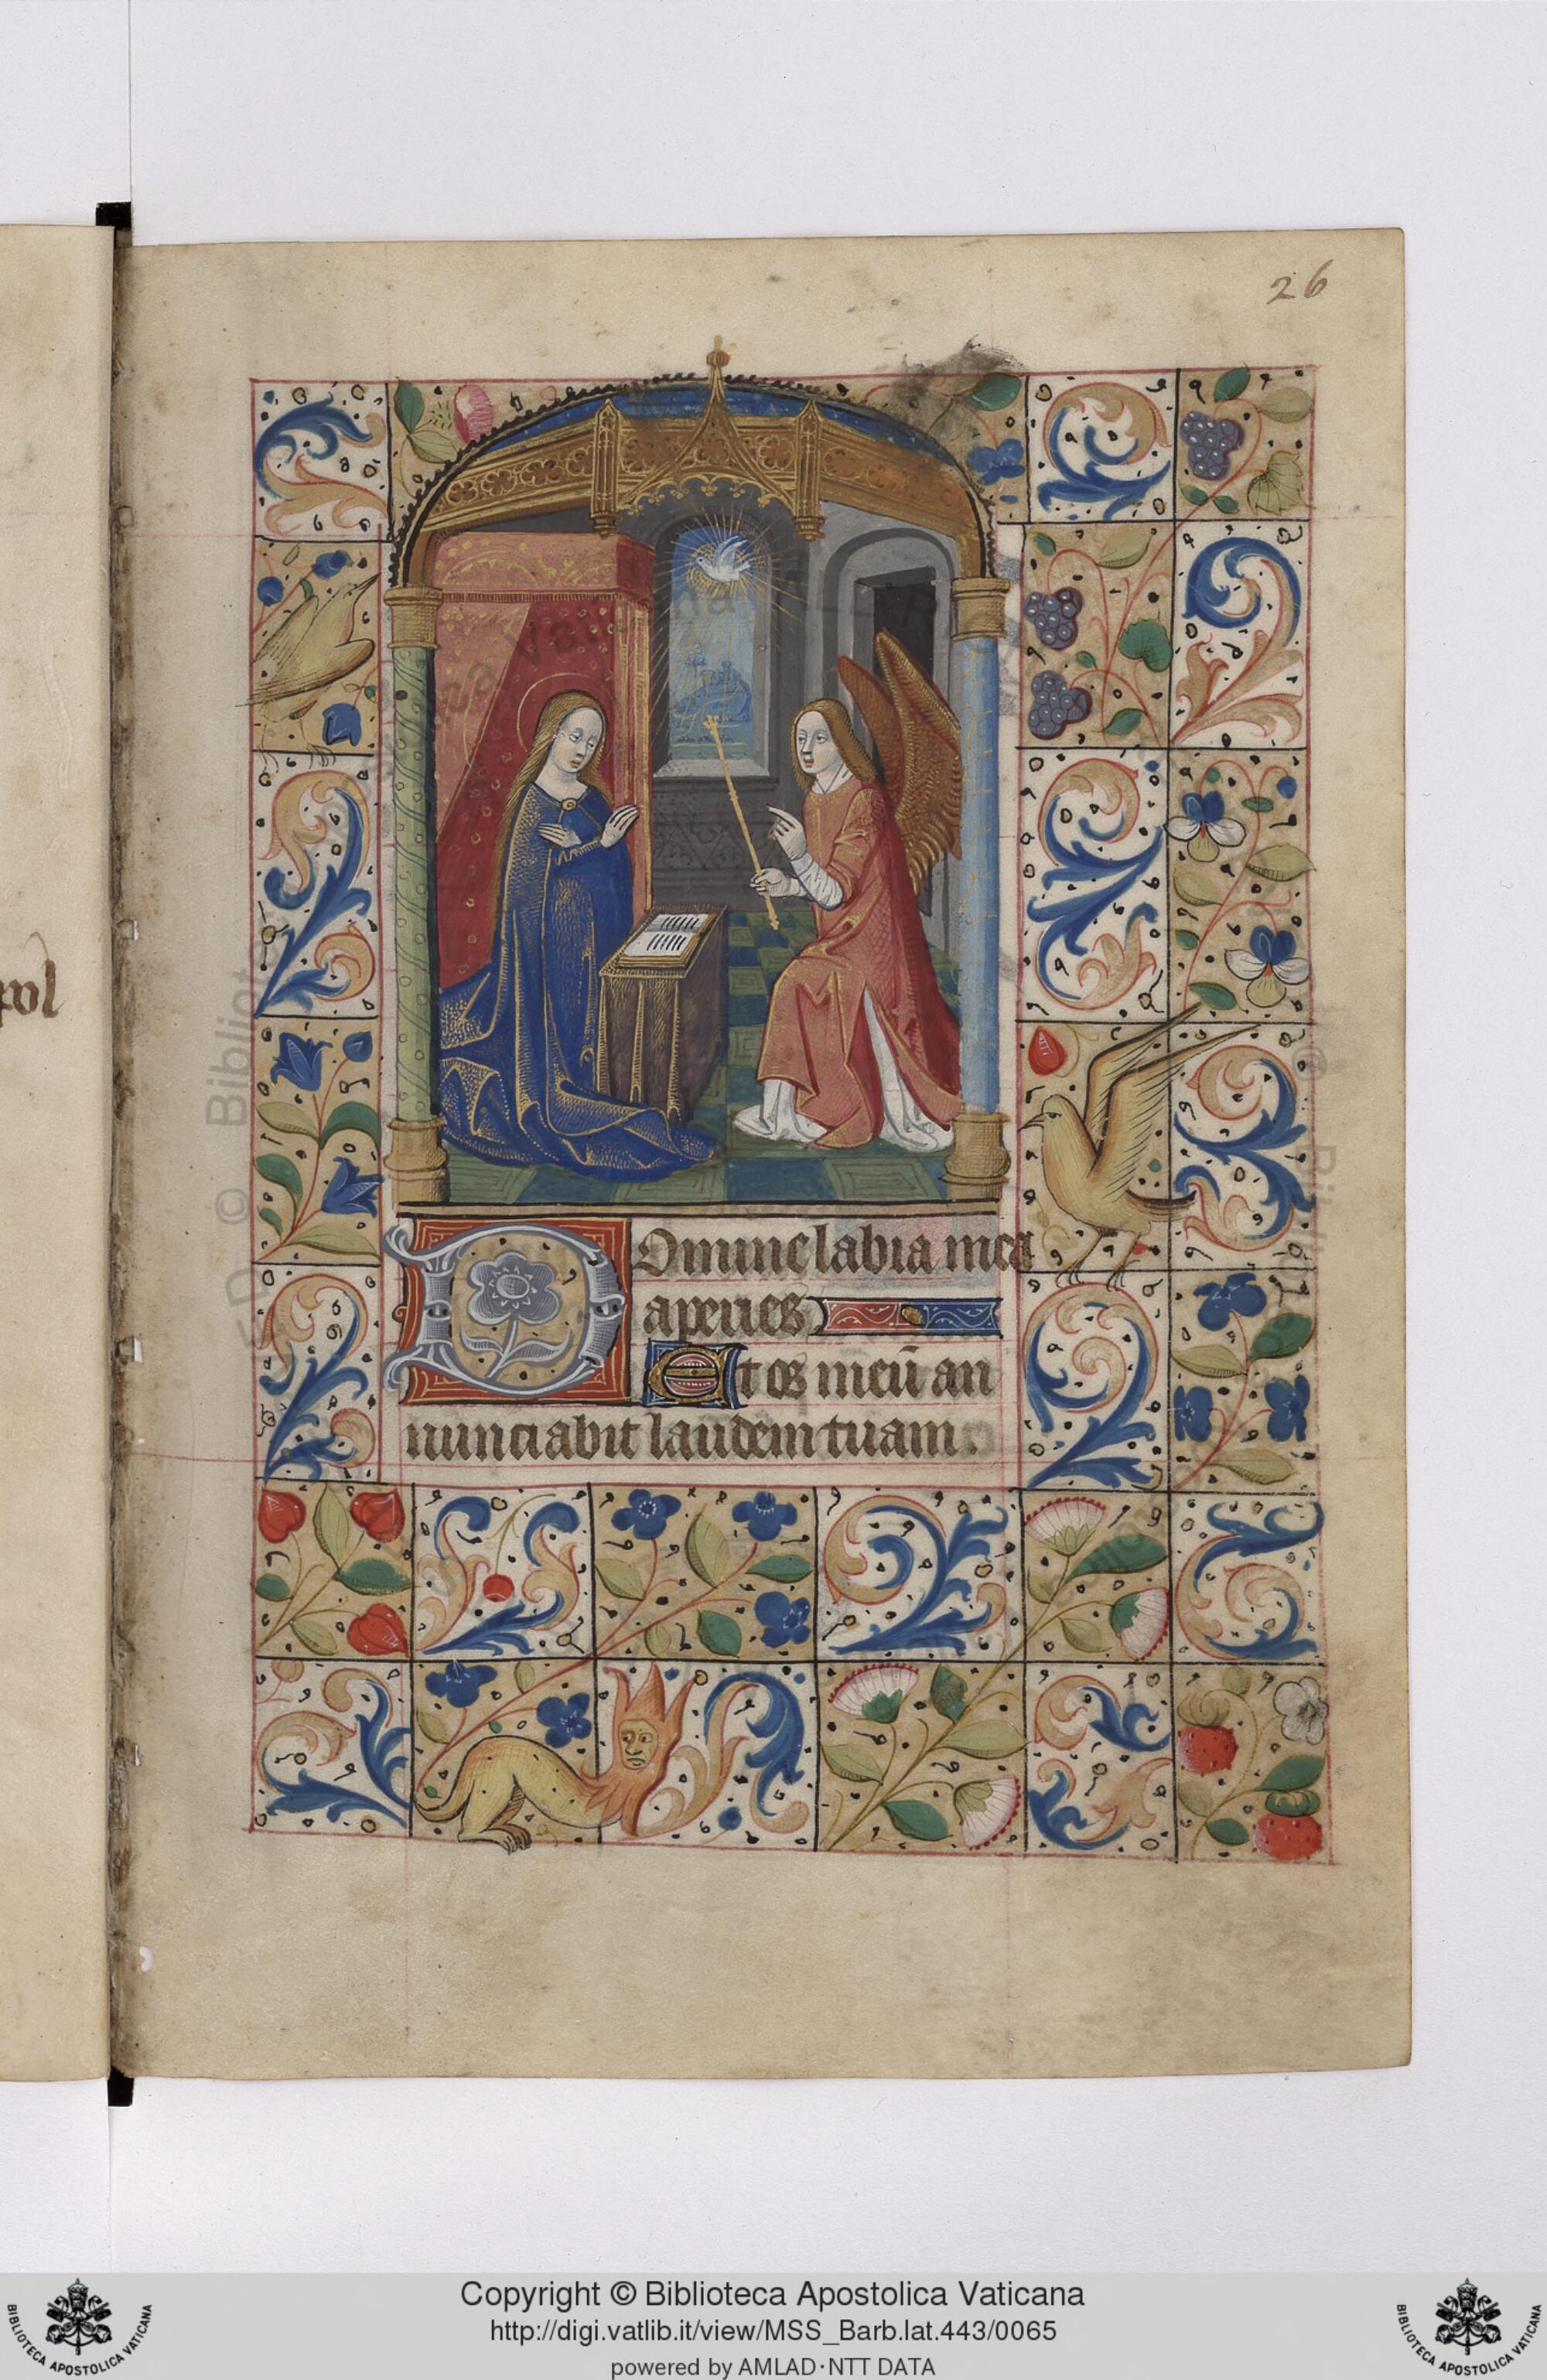 26
pol
Domine labia mea
aperies
Et os meū an
nunciabit laudem tuam.
Copyright © Biblioteca Apostolica Vaticana
http://digi.vatlib.it/view/MSS_Barb.lat.443/0065
powered by AMLAD·NTT DATA
BIBLIOTECA APOSTOLICA VATICANA
BIBLIOTECA APOSTOLICA VATICANA